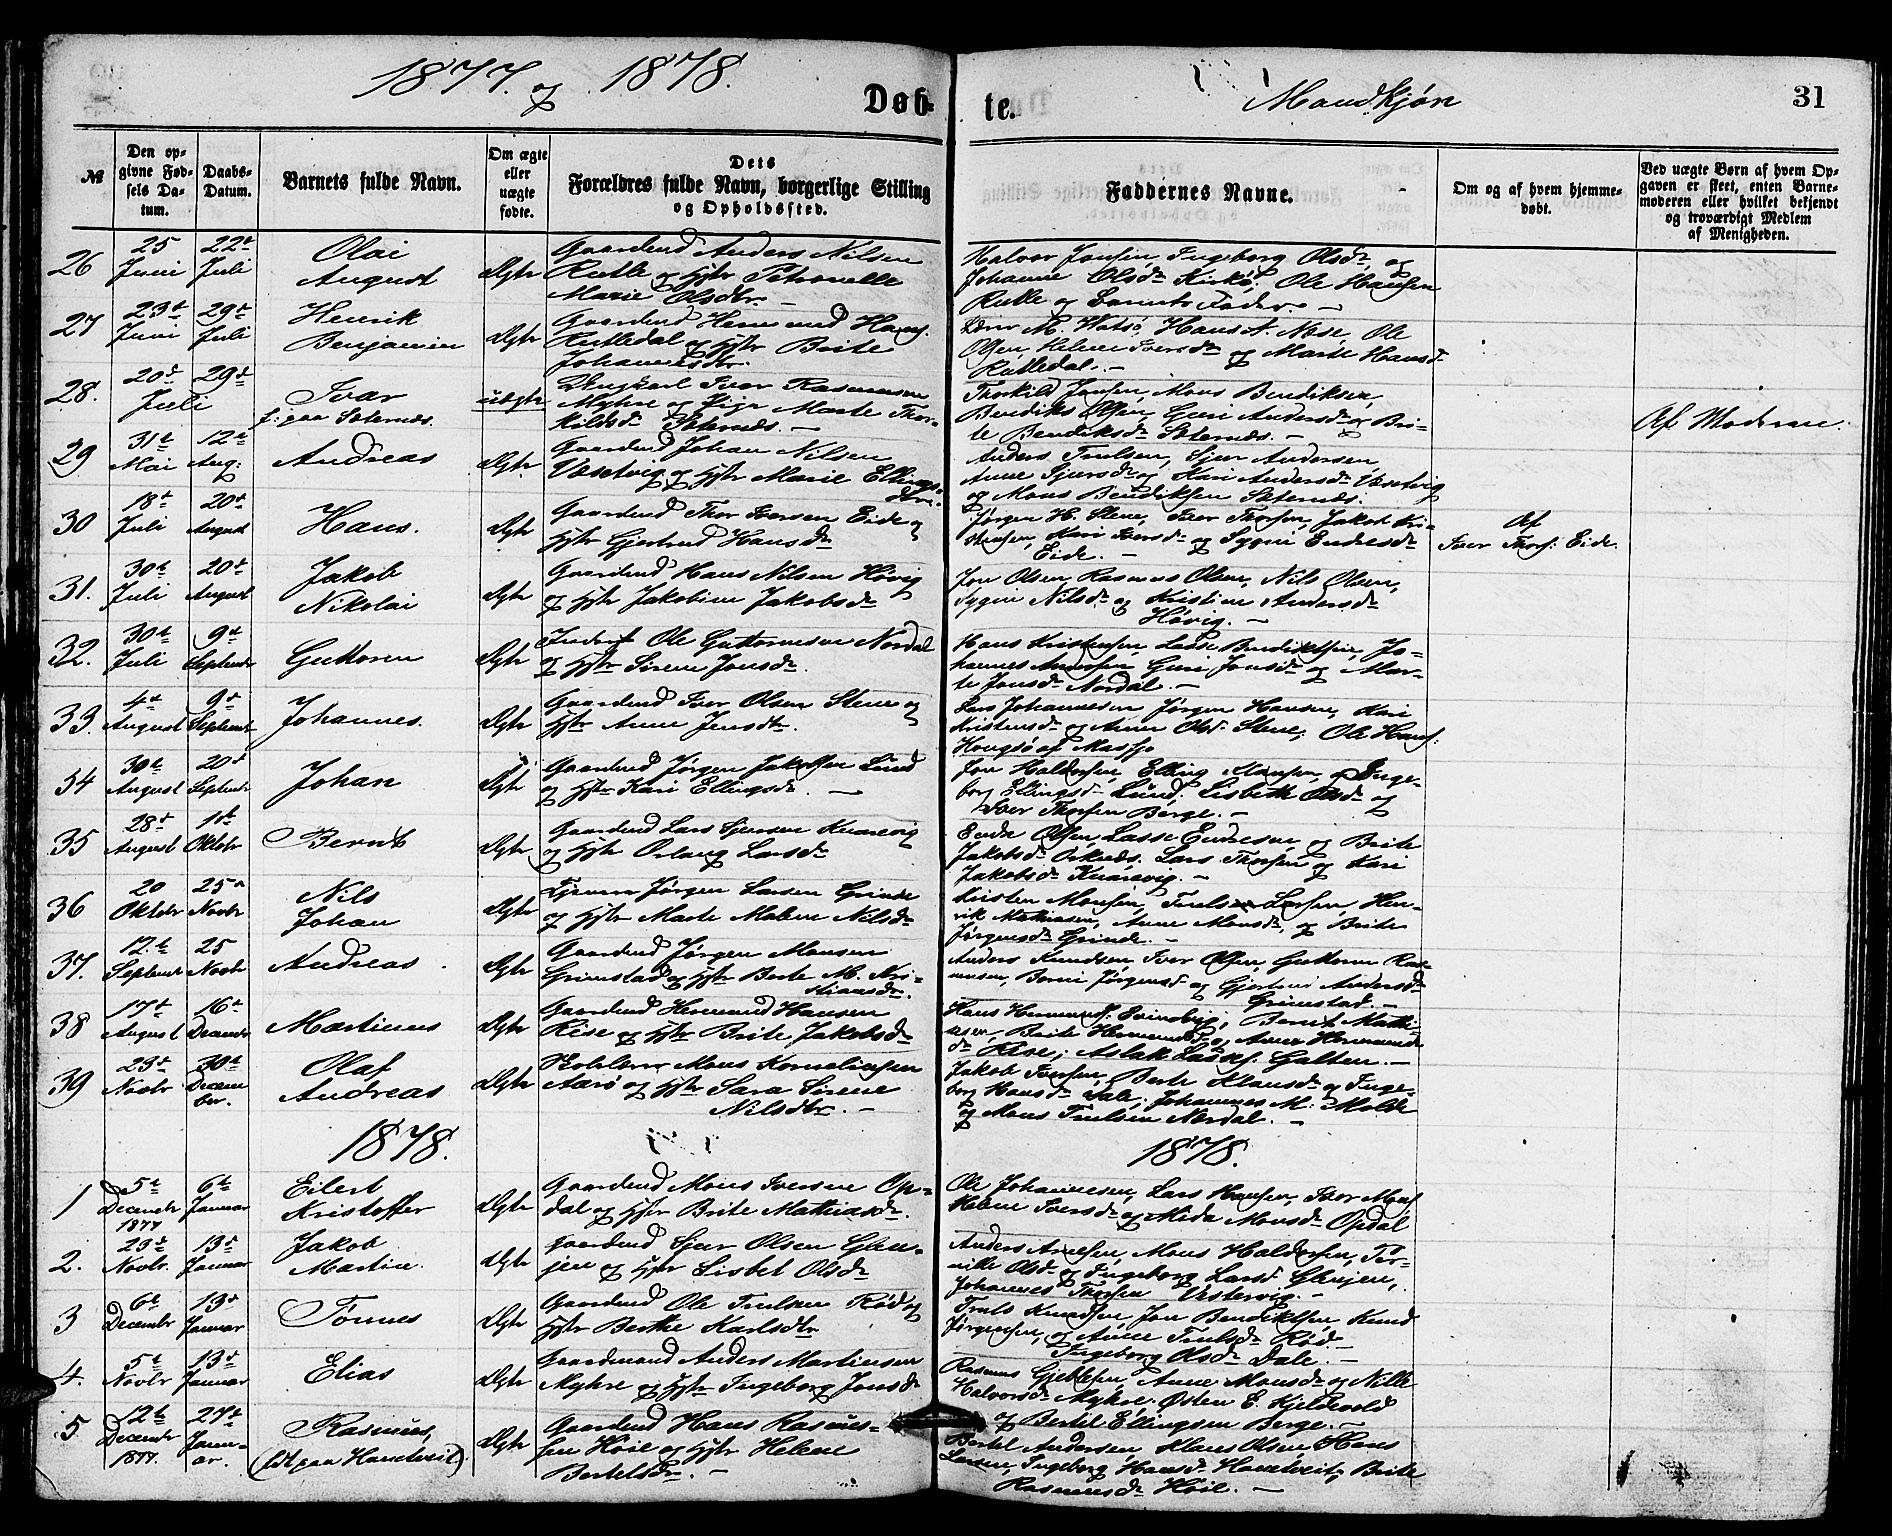 1877. og 1878.
Døb-
te.
Mandkjøn
31
№
Den op-
givne Fød-
sels Da-
tum.
Daabs-
Datum.
Barnets fulde Navn.
Om ægte
eller
uægte
fødte.
Dets
Forældres fulde Navn, borgerlige Stilling
og Opholdssted.
Faddernes Navne.
Om og af hvem hjemme-
døbt.
Ved uægte Børn af hvem Op-
gaven er skeet, enten Barne-
moderen eller hvilket bekjendt
og troværdigt Medlem
af Menigheden.
26
25
Juni
22de
Juli
Olai
August
Ægte
Gaardmd Anders Nilsen
Rutle og Hstr Petronelle
Marie Olsdtr. —
Halvor Jonsen, Ingeborg Olsdr og
Johanne Olsdr Kirkø, Ole Hansen
Rutle og Barnets Fader. —
27
23de
Juni
29de
Juli
Henrik
Benjamin
Ægte
Gaardmd Hermund Hans.
Rutledal og Hstr Brite
Johannesdtr.
Lærer M. Watsø, Hans A. Nese, Ole
Olsen, Helene Iversdr og Marte Hansdr
Rutledal. —
28.
20de
Juli
29de
Ivar
f. paa Sæternæs.
uægte
Ungkarl Iver Rasmussen
Myhre og Pige Marte Thor-
kildsdr Sæternæs. —
Thorkild Jonsen, Mons Bendiksen,
Bendiks Olsen, Guri Andersdr og Bri-
te Bendiksdr Sæternæs. —
Af Moderen.
29
31te
Mai
12te
Aug:
Andreas
Ægte
Gaardmd Johan Nilsen
Væsetvig og Hstr Marie Ellings-
dtr.
Anders Trulsen, Sjur Andersen
Anne Sjursdr og Kari Andersdr Væsetvig
og Mons Bendiksen Sæternæs.
30
18de
Juli
20de
August
Hans.
Ægte
Gaardmd Thor Iversen Eide og
Hstr Gjertrud Hansdr
Jørgen H. Stene, Iver Thorsen, Jakob Kri-
stensen, Kari Iversdr og Sygni Endresdr
Eide. —
Af
Iver Thors: Eide.
31.
30te
Juli
20de
August
Jakob
Nikolai
Ægte
Gaardmd Hans Nilsen Høvig
og Hstr Jakobine Jakobsdr
Jon Olsen, Rasmus Olsen, Nils Olsen,
Sygni Nilsdr og Kristine Andersdr
Høvig. —
32.
30te
Juli
9de
Septembr
Guttorm
Ægte
Inderst Ole Guttormsen Nordal
og Hstr Sirene Jonsdr.
Hans Kristensen, Lasse Bendiktsen, Jo-
hannes Andersen, Guri Jonsdr og Mar-
te Jonsdr Nordal. —
33.
4de
August
9de
Septembr
Johannes.
Ægte
Gaardmd Iver Olsen Stene og
Hstr Anne Jensdtr.
Lars Johannesen Jørgen Hansen, Kari
Kristensdr og Anne Olsdr Stene, Ole Hans:
Hougsø af Masfjo
34
30te
August
20de
Septembr
Johan
Ægte
Gaardmd Jørgen Jakobsen Lund
og Hstr Kari Ellingsdr. —
Jon Haldorsen, Elling Klausen, Inge-
borg Ellingsdr Lund, Lisbeth Olsdr og
Iver Thorsen Berge. —
35
28de
August
1ste
Oktobr
Bernt
Ægte
Gaardmd Lars Sjursen Kvarevig
og Hstr Orlaug Larsdr
Endre Olsen, Lasse Endresen og Brite
Jakobsdr Losnæs. Lars Thorsen og Kari
Jakobsdr Kvarevig. —
36
20
Oktobr
25de
Novbr
Nils
Johan
Ægte
Jørgen Larsen Grinde
og Hstr Marte Malene Nilsdr
Kristen Monsen, Truls Larsen, Hen-
rik Mathiasen, Anne Monsdr og Brite
Jørgensdr Grinde. —
37.
12te
Septembr
25
Novbr
Andreas.
Ægte
Gaardmd Jørgen Monsen
Grimstad og Hstr Berte M. Kri-
stiansdr.
Anders Knudsen Iver Olsen, Guttorm Ras-
mussen, Borni Jørgensdr og Gjertine Andersdr
Grimstad. —
38
17de
August
16de
Decembr
Martinus
Ægte
Gaardmd Hermund Hansen
Risе og Hstr Brite Jakobsdr
Hans Hermunds. Svindvig, Bernt Mathi-
sen, Brite Hermundsdr og Anne Hermunds
dr Rise, Aslak Lasses. Galten. —
39
29de
Novbr
30te
Decem
ber.
Olaf
Andreas
Ægte
Mons Korneliussen
Aarø og Hstr Sara Sirene
Nilsdtr. —
Jakob Iversen, Berte Klausdr og Inge-
borg Hansdr Dale, Johannes M: Molde
og Mons Trulsen Nordal. —
1878.
1878.
1
5te
Decembr
1877
6te
Januar
Eilert
Kristoffer
Ægte
Gaardmd Mons Iversen Op-
dal og Hstr Brite Mathiasdr.
Ole Johannesen, Lars Hansen, Iver Mons:
Helene Iversdr og Mida Monsdr Opdal
2.
29de
Novbr.
13de
Januar
Jakob
Martin.
Ægte
Gaardmd Sjur Olsen Glen-
jen og Hstr Lisbet Olsdr
Anders Arnesen, Mons Haldorsen, Per-
nille Olsdr og Ingeborg Larsd. Glenjen,
Johannes Thorsen Væstervig. —
3
6te
Decembr
13de
Januar
Tønnes
Ægte
Gaardmd Ole Trulsen Rød og
Hstr Berthe Karlsdtr
Truls Knudsen, Jon Bendiktsen, Knud
Jørgensen, og Anne Trulsdr Rød
Ingeborg Olsdr Dale. —
4.
5te
Novbr
13de
Januar
Elias
Ægte
Gaardmand Anders Martinusen
Myhre og Hstr Ingeborg Jonsdr
Rasmus Gjeblesen, Anne Monsdr og Nille
Halvorsdr Myhre. Østen E. Hjeldevold
og Bertel Ellingsen Berge. —
5
12te
Decembr
1877.
27de
Janu-
ar.
Rasmus,
(fdt paa Hantveit).
Ægte
Gaardmd Hans Rasmus-
sen Høie og Hstr Helene
Bertelsdr. —
Bertel Andersen, Klaus Olsen, Hans
Larsen, Ingeborg Hansdr Hantveit, Brite
Rasmusdr Høie. —